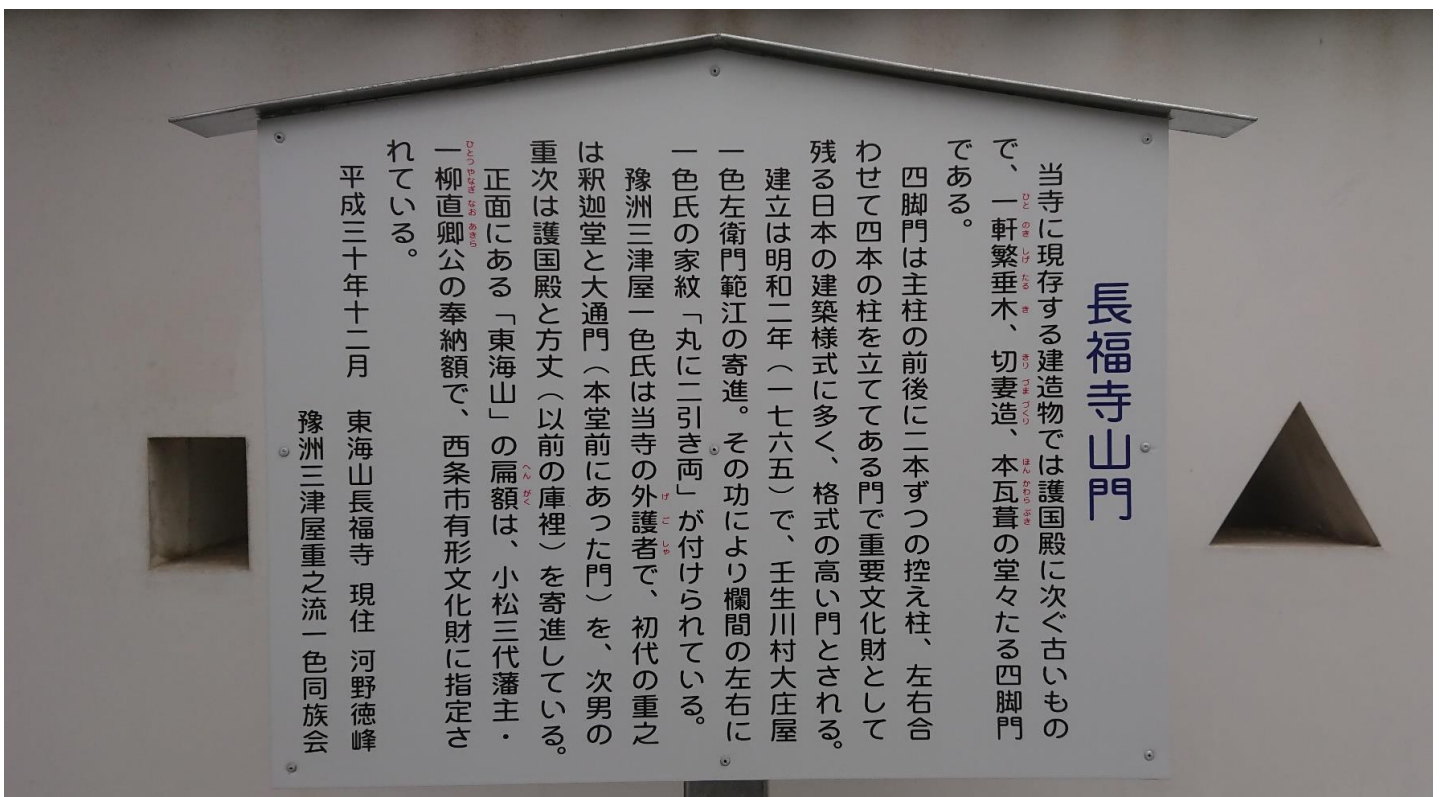 長福寺山門
当寺に現存する建造物では護国殿に次ぐ古いもの
で、一軒繁垂木、切妻造、本瓦葺の堂々たる四脚門
である。
四脚門は主柱の前後に二本ずつの控え柱、左右合
わせて四本の柱を立ててある門で重要文化財として
残る日本の建築様式に多く、格式の高い門とされる。
建立は明和二年（一七六五）で、壬生川村大庄屋
一色左衛門範江の寄進。その功により欄間の左右に
一色氏の家紋「丸に二引き両」が付けられている。
豫洲三津屋一色氏は当寺の外護者で、初代の重之
は釈迦堂と大通門（本堂前にあった門）を、次男の
重次は護国殿と方丈（以前の庫裡）を寄進している。
正面にある「東海山」の扁額は、小松三代藩主・
一柳直卿公の奉納額で、西条市有形文化財に指定さ
れている。
平成三十年十二月　東海山長福寺 現住 河野徳峰
豫洲三津屋重之流一色同族会